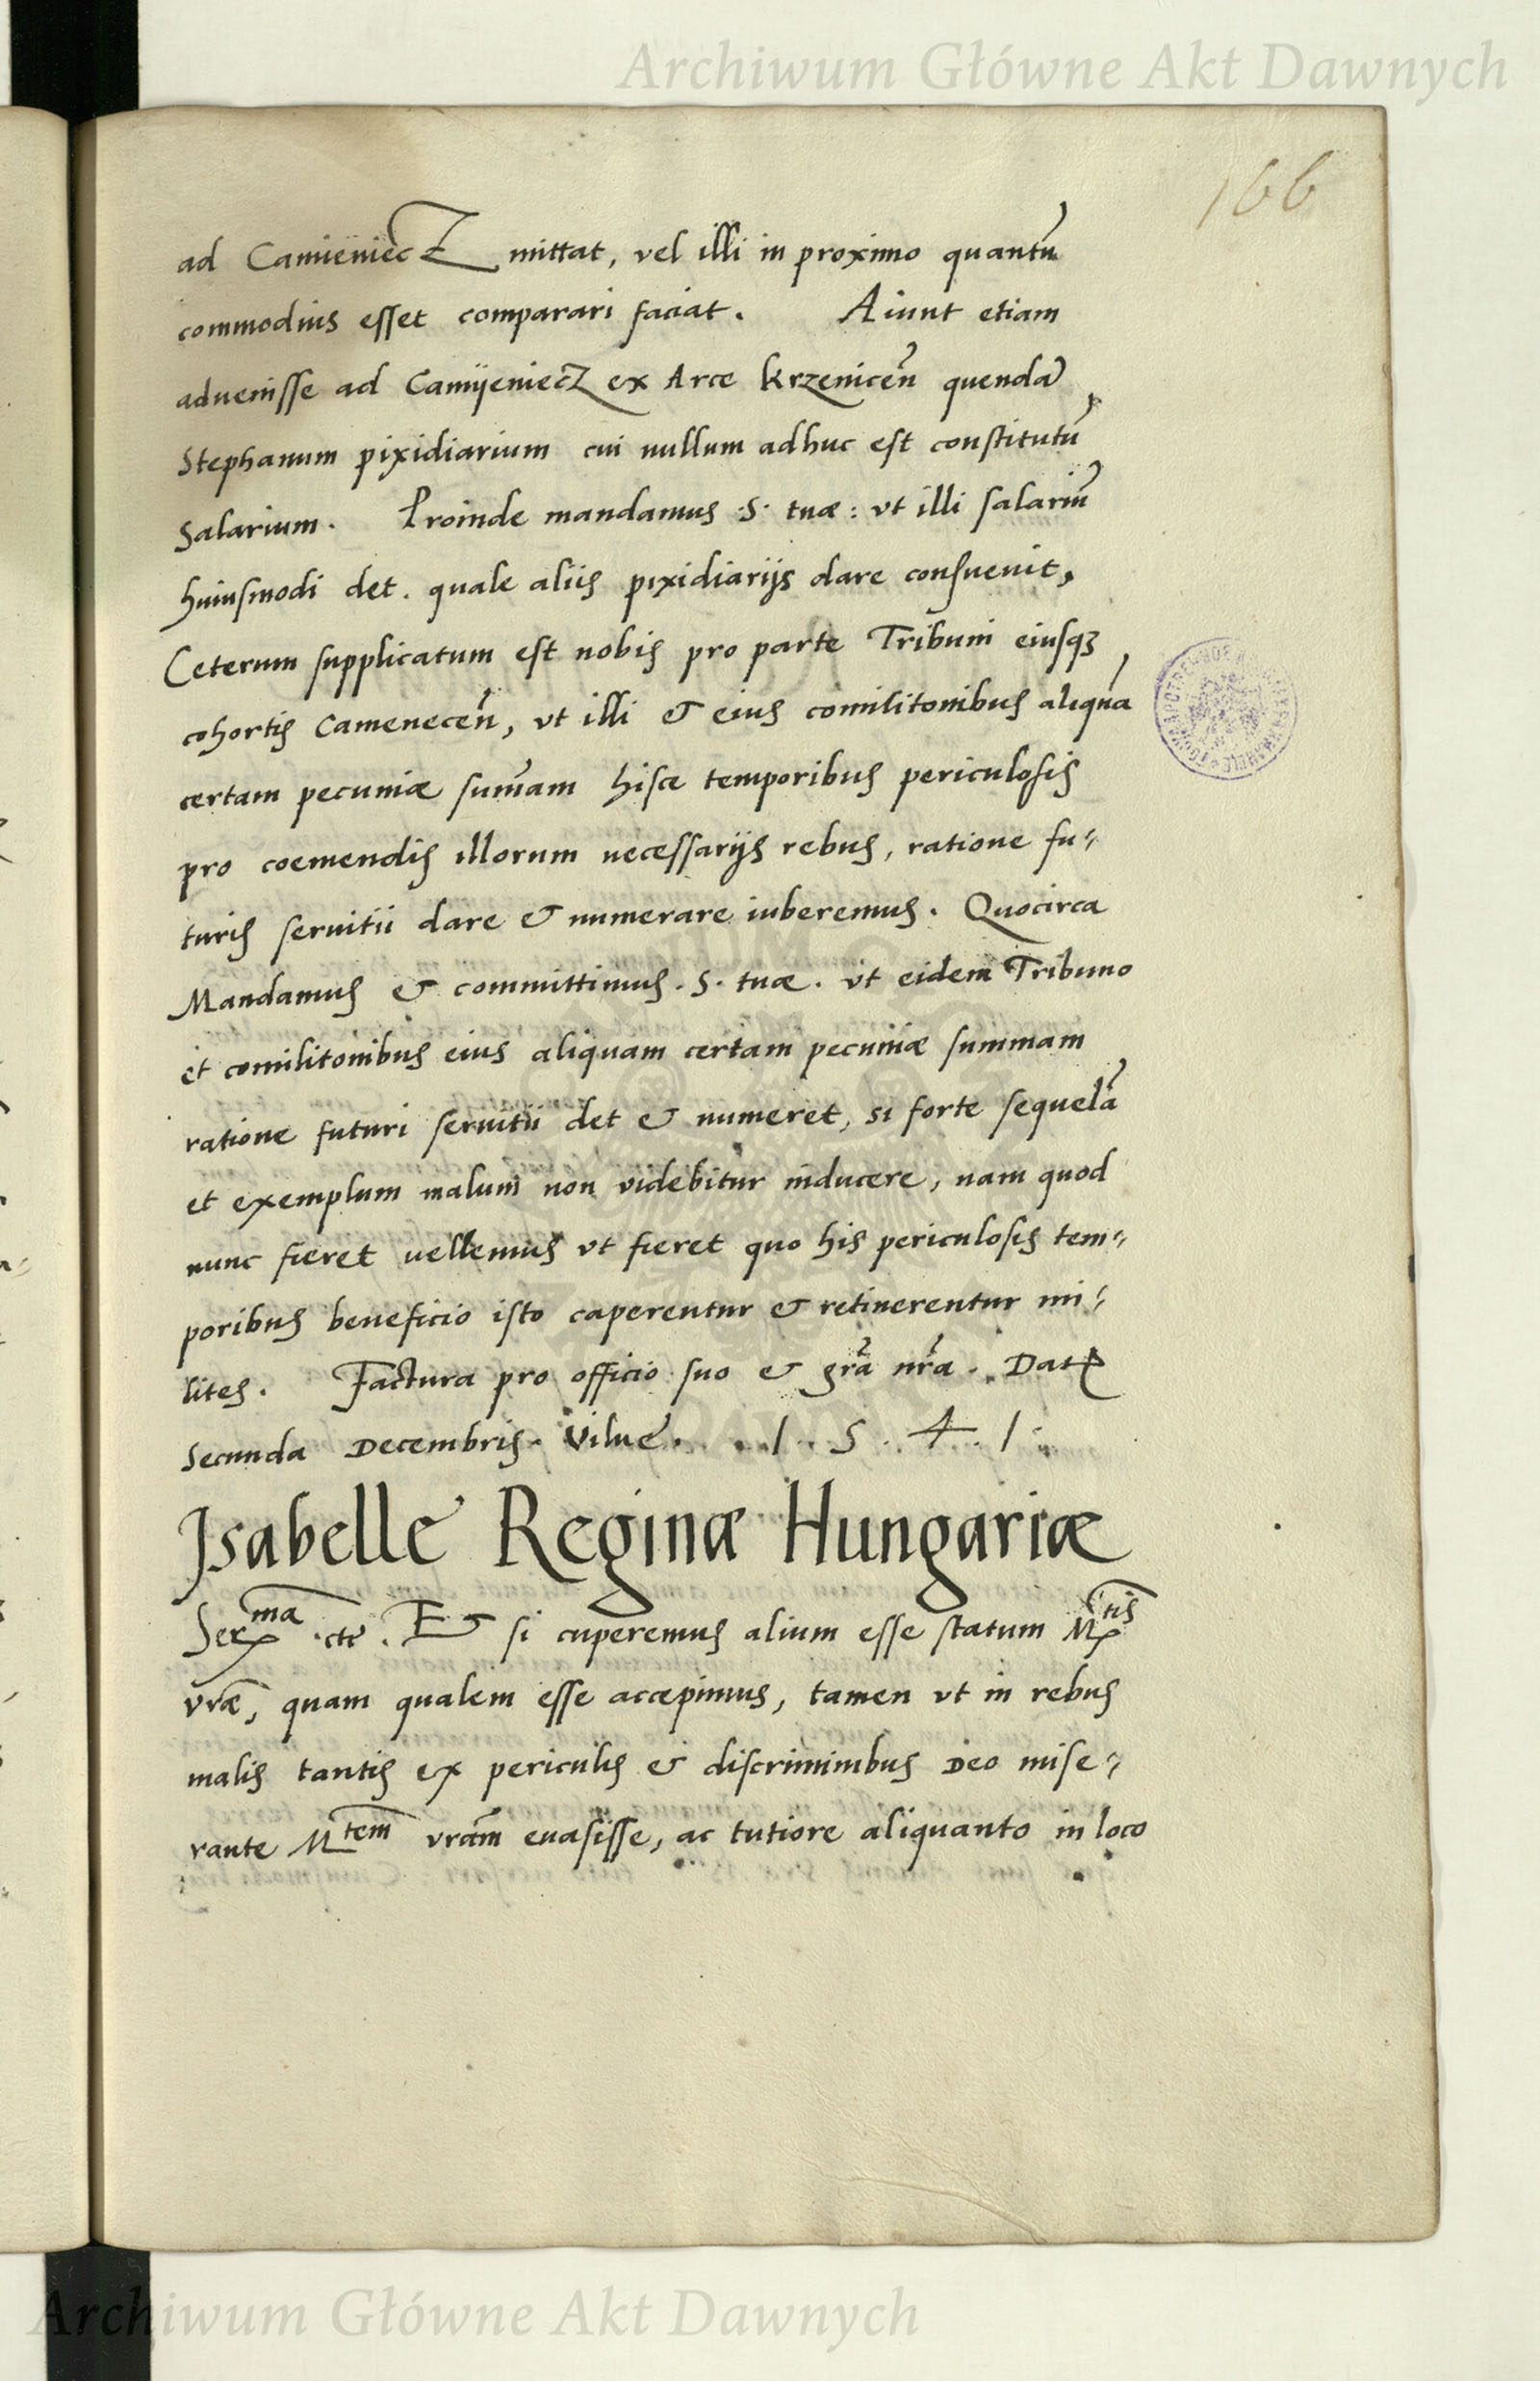 Archiwum Główne Akt Dawnych
166
ad Camieniecz mittat, vel illi in proximo quantũ
commodius esset comparari faciat. Aiunt etiam
aduenisse ad Camijeniecz ex Arce Krzenicen̄ quendā
Stephanum pixidiarium cui nullum adhuc est constitutũ
Salarium. Proinde mandamus .S. tuæ: vt illi salariũ
huiusmodi det. quale aliis pixidiarijs dare consueuit,
Ceterum supplicatum est nobis pro parte Tribuni eiusqꝫ
cohortis Camenecen̄, vt illi & eius comilitonibus aliqũa
certam pecuniæ sum̄am hisce temporibus periculosis
pro coemendis illorum necessarijs rebus, ratione fu-
turis seruitii dare & numerare iuberemus. Quocirca
Mandamus & committimus .S. tuæ. vt eidem Tribuno
et comilitonibus eius aliquam certam pecuniæ summam
ratione futuri seruitii det & numeret, si forte sequelā
et exemplum malum non videbitur inducere, nam quod
nunc fieret uellemus vt fieret quo his periculosis tem-
poribus beneficio isto caperentur & retinerentur mi-
lites. Factura pro officio suo & gr̄a nr̄a. Datꝭ
Secunda Decembris. Vilnę. .1.5.4.1.
Isabelle Reginæ Hungariæ
Serᵐᵃ .etc̄. Et si cuperemus alium esse statum Mᵗⁱˢ
vr̄æ, quam qualem esse accepimus, tamen vt in rebus
malis tantis ex periculis & discriminibus Deo mise-
rante Mᵗᵉᵐ vr̄am euasisse, ac tutiore aliquanto in loco
Archiwum Główne Akt Dawnych